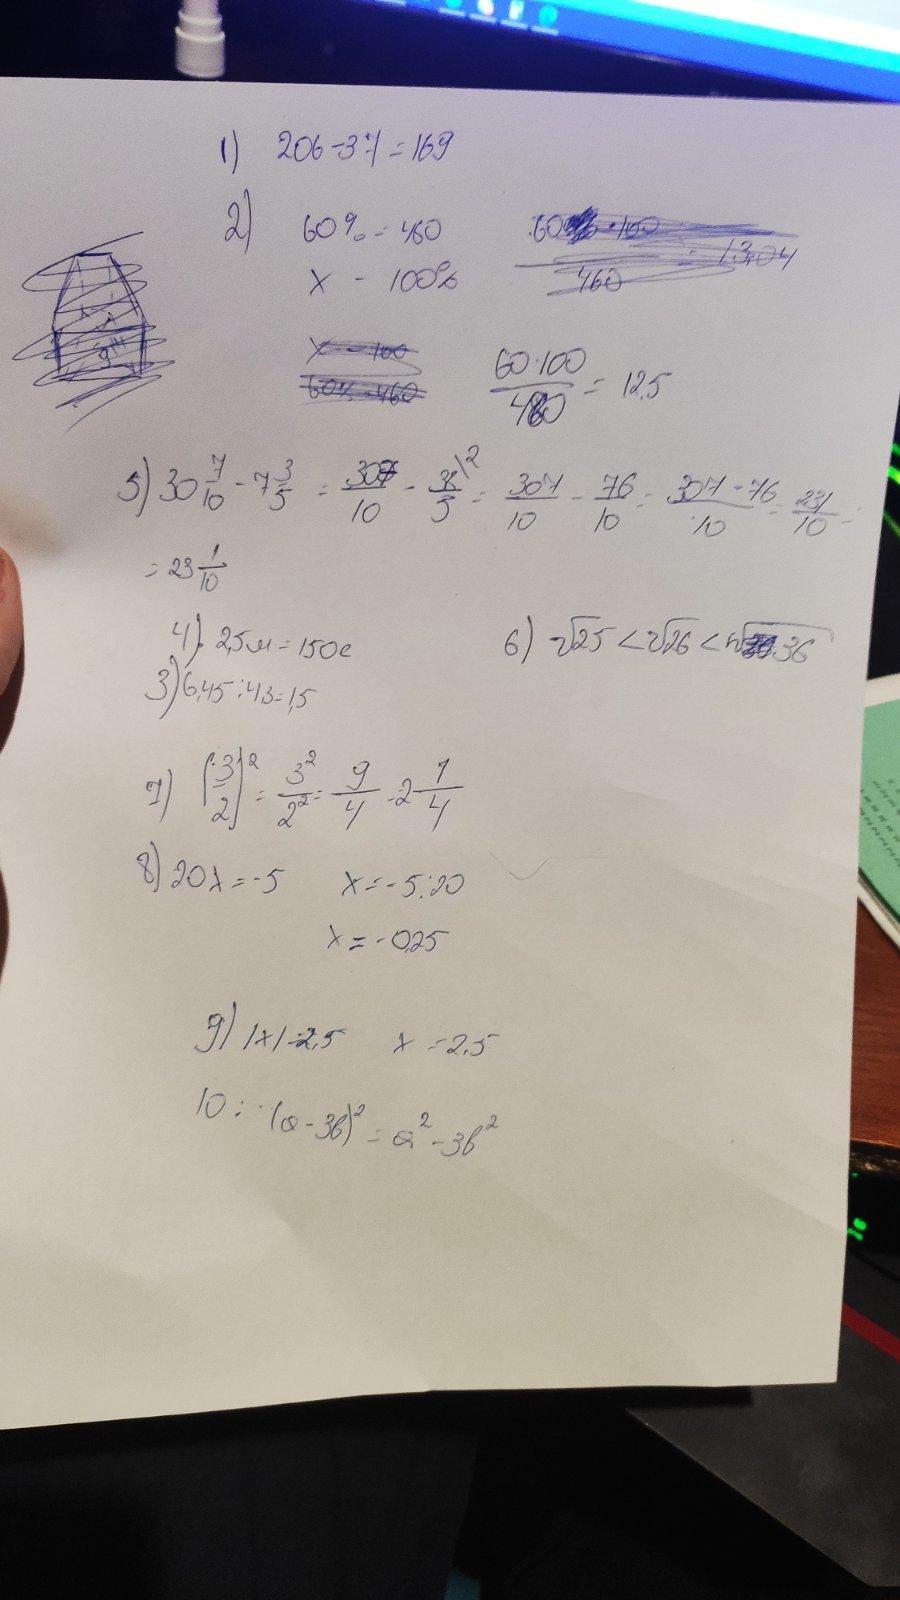 1) 206-37=169
2) 60% - 480
x - 100%
60 · 100 / 460 = 13,04
x - 100
60% - 460
60·100 / 480 = 12,5
5) 30 7/10 - 7 3/5 = 307/10 - 38/5 \2 = 307/10 - 76/10 = 307-76/10 = 231/10 =
= 23 1/10
4) 2,5м = 150с
6) √25 < √26 < √36
3) 6,45:43=1,5
7) (3/2)² = 3²/2² = 9/4 = 2 1/4
8) 20x = -5 x = -5:20
x = -0,25
9) |x| = 2,5 x = 2,5
10: (a-3b)² = a² - 3b²